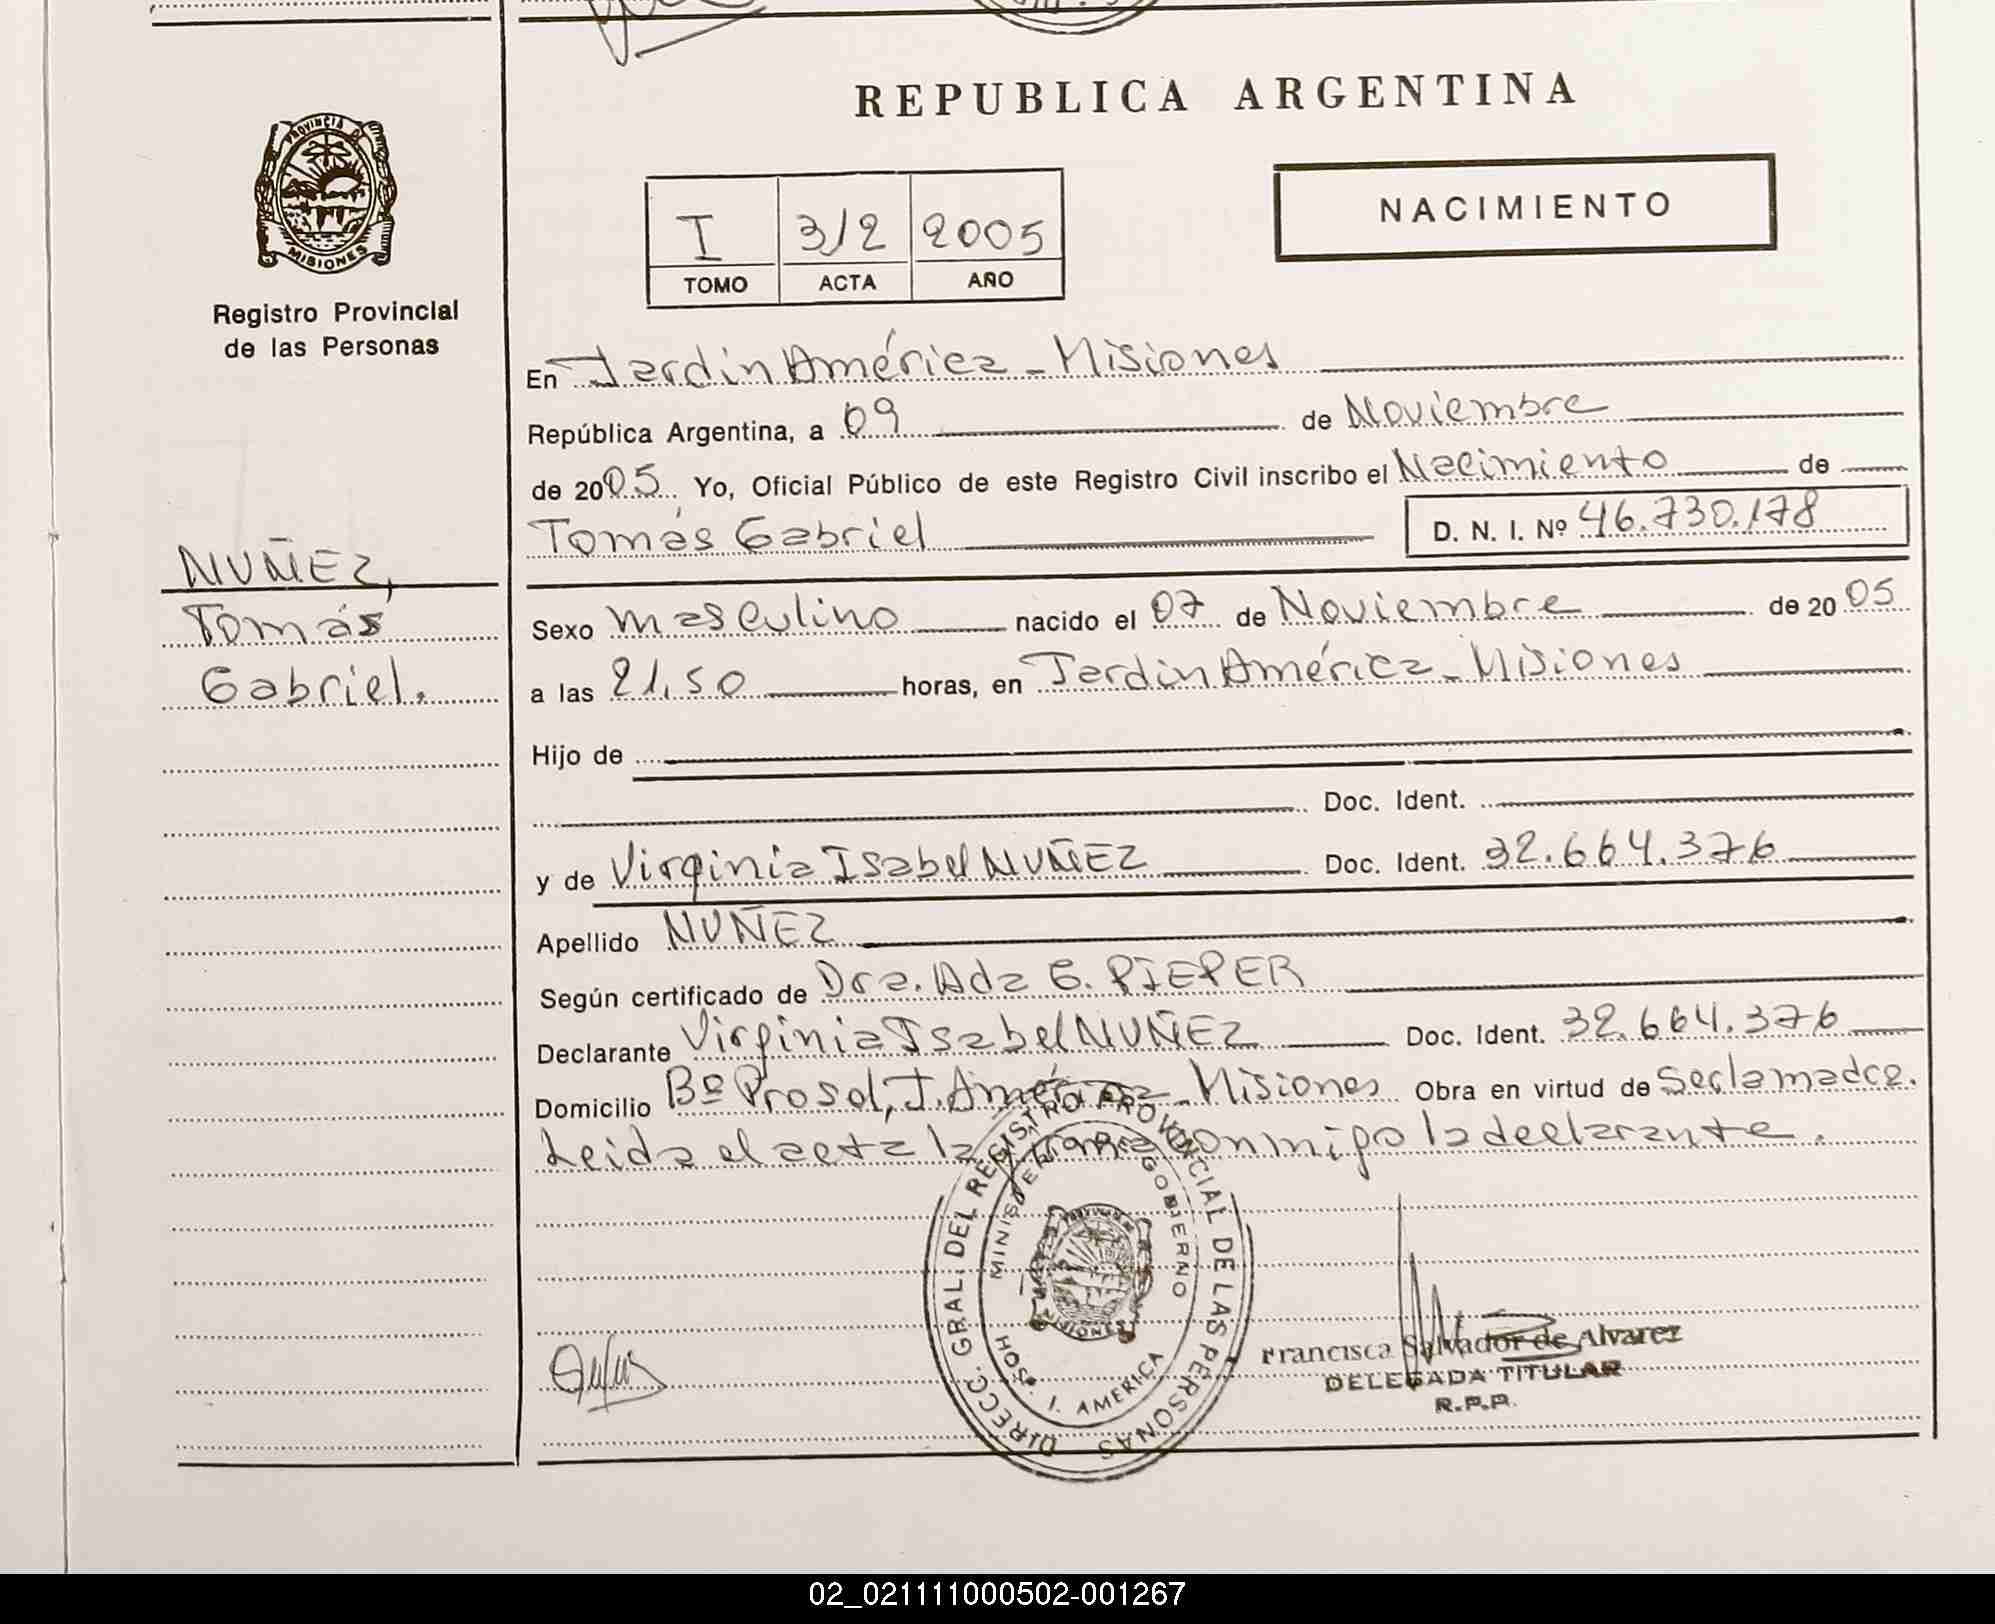 REPUBLICA ARGENTINA
PROVINCIA DE
MISIONES
Registro Provincial
de las Personas
NACIMIENTO
I 312 2005
TOMO ACTA AÑO
En Jardin América - Misiones
República Argentina, a 09 de Noviembre
de 2005 Yo, Oficial Público de este Registro Civil inscribo el Nacimiento de
Tomás Gabriel D. N. I. Nº 46.730.178
NUÑEZ,
Tomás
Gabriel.
Sexo masculino nacido el 07 de Noviembre de 2005
a las 21,50 horas, en Jardin América - Misiones
Hijo de
Doc. Ident.
y de Virginia Isabel NUÑEZ Doc. Ident. 32.664.376
Apellido NUÑEZ
Según certificado de Dra. Ada G. PIEPER
Declarante Virginia Isabel NUÑEZ Doc. Ident. 32.664.376
Domicilio Bº Prosol, J. América - Misiones Obra en virtud de Ser la madre.
Leida el acta la firma conmigo la declarante.
DIRECC. GRAL. DEL REGISTRO PROVINCIAL DE LAS PERSONAS
MINISTERIO DE GOBIERNO
MISIONES
HOSP. J. AMERICA
Francisca Salvador de Alvarez
DELEGADA TITULAR
R.P.P.
02_021111000502-001267